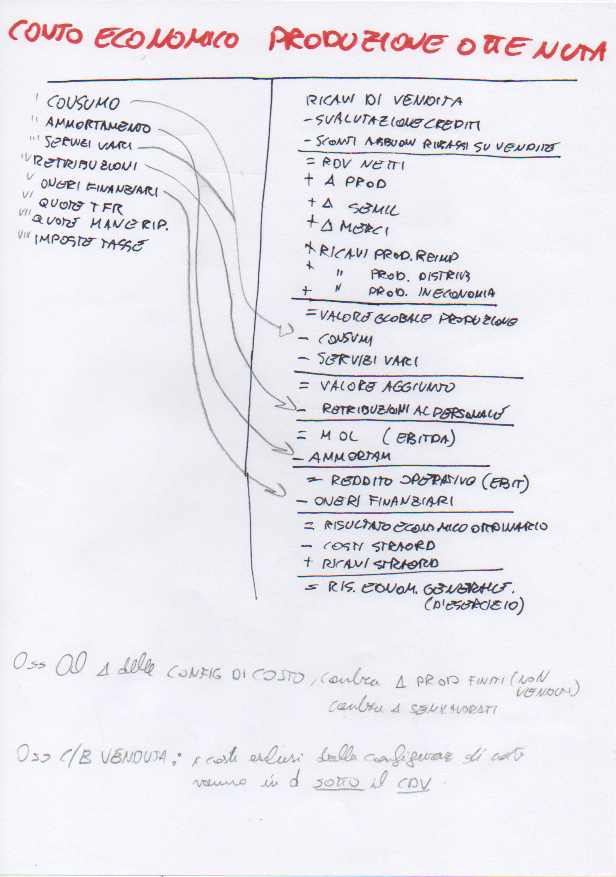 CONTO ECONOMICO PRODUZIONE OTTENUTA
I CONSUMO
II AMMORTAMENTO
III SERVIZI VARI
IV RETRIBUZIONI
V ONERI FINANZIARI
VI QUOTE TFR
VII QUOTE MAN E RIP.
VIII IMPOSTE TASSE
RICAVI DI VENDITA
- SVALUTAZIONE CREDITI
- SCONTI ABBUONI RIBASSI SU VENDITE
= RDV NETTI
+ Δ PROD
+ Δ SEMIL
+ Δ MERCI
+ RICAVI PROD. REIMP
+ " PROD. DISTRIB
+ " PROD. IN ECONOMIA
= VALORE GLOBALE PRODUZIONE
- CONSUMI
- SERVIZI VARI
= VALORE AGGIUNTO
- RETRIBUZIONI AL PERSONALE
= MOL (EBITDA)
- AMMORTAM
= REDDITO OPERATIVO (EBIT)
- ONERI FINANZIARI
= RISULTATO ECONOMICO ORDINARIO
- COSTI STRAORD
+ RICAVI STRAORD
= RIS. ECONOM. GENERALE.
(D'ESERCIZIO)
Oss Al Δ delle CONFIG DI COSTO, cambia Δ PROD FINITI (NON
VENDUTI)
cambia Δ SEMILAVORATI
Oss C/B VENDUTA: i costi esclusi dalla configuraz di costo
vanno in d SOTTO il CDV